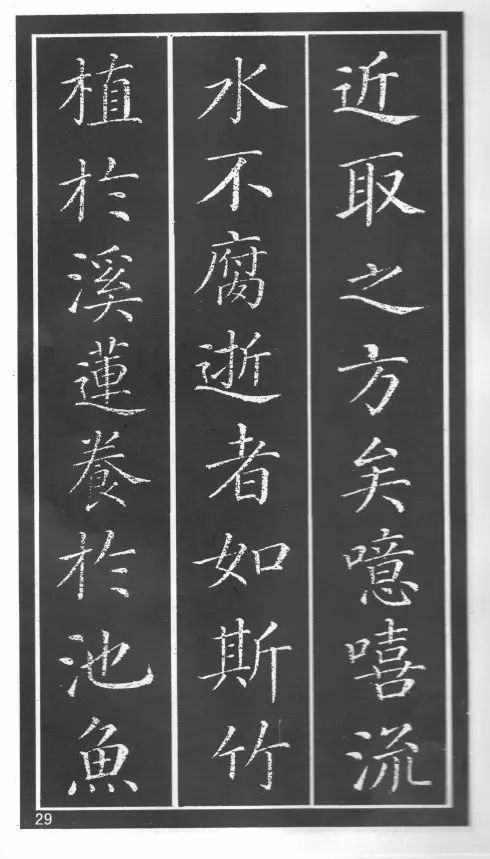 近取之方矣噫嘻流
水不腐逝者如斯竹
植於溪蓮養於池魚
29